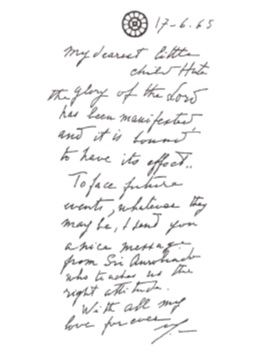 17-6-65
My dearest little
child Huta
the glory of the Lord
has been manifested
and it is bound
to have its effect..
To face future
events, whatever they
may be, I send you
a nice message
from Sri Aurobindo
who teaches us the
right attitude.
With all my
love for ever